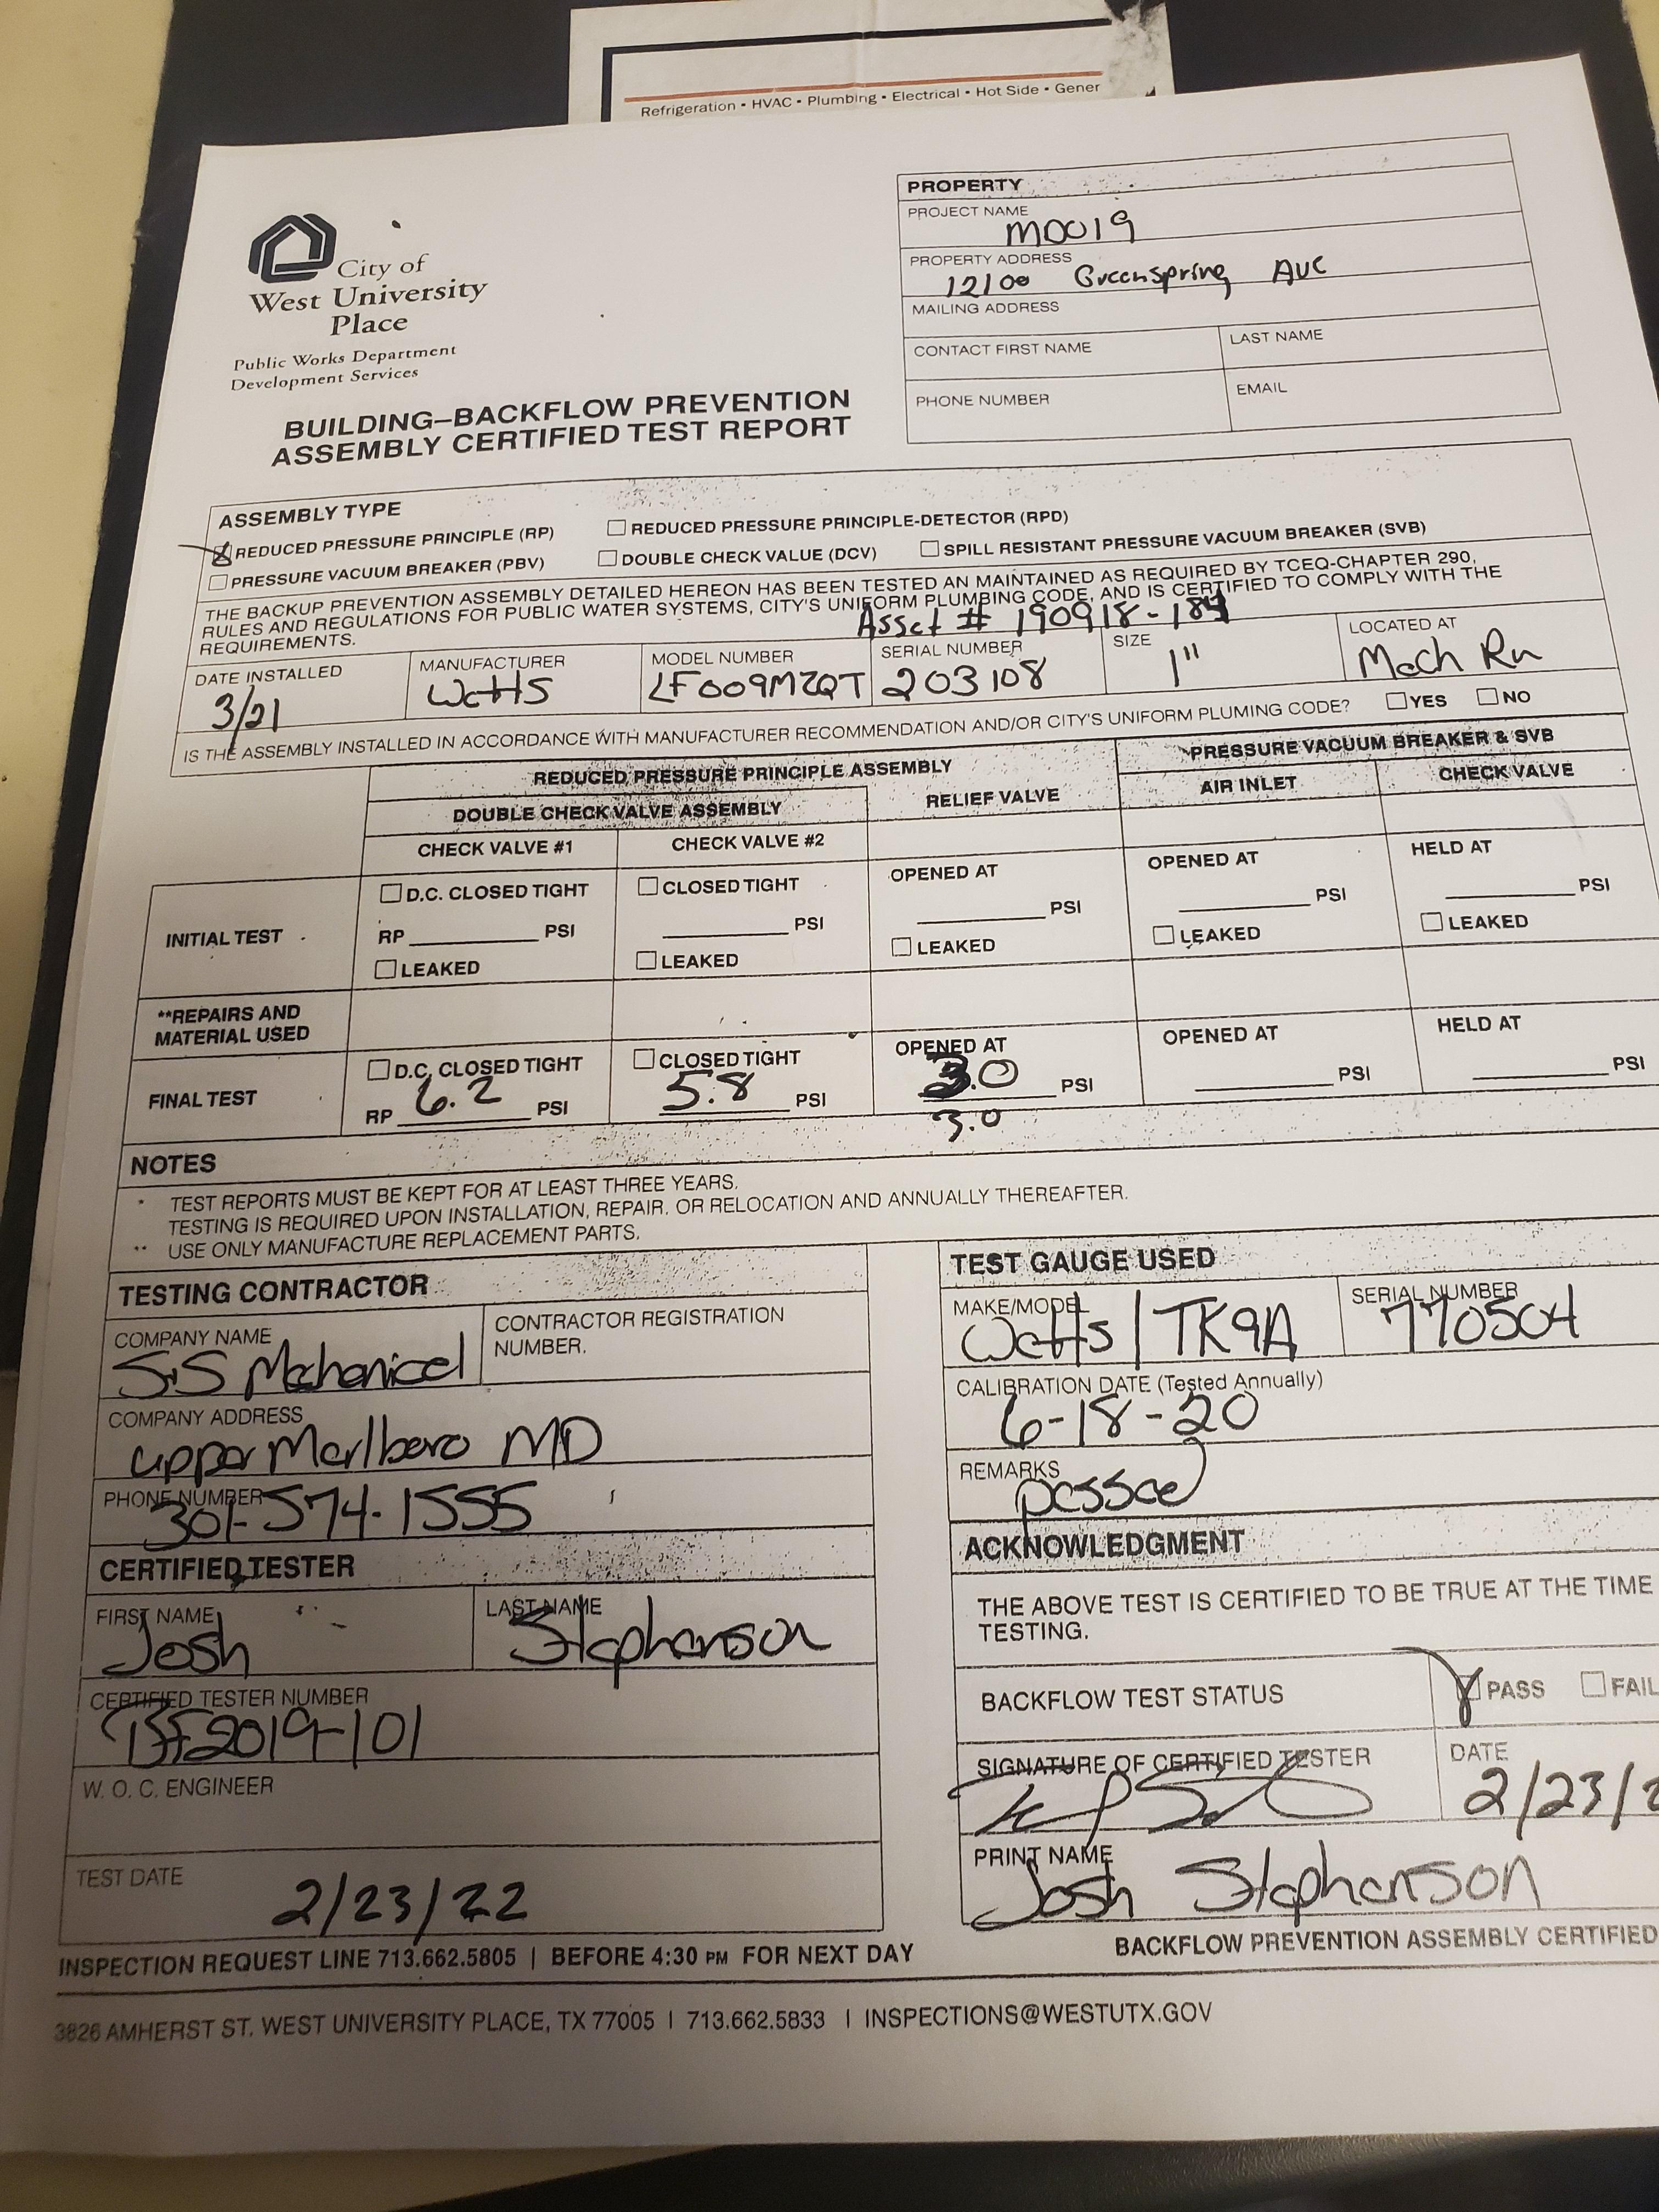 Refrigeration • HVAC • Plumbing • Electrical • Hot Side • Gener
City of
West University
Place
Public Works Department
Development Services
BUILDING–BACKFLOW PREVENTION
ASSEMBLY CERTIFIED TEST REPORT
PROPERTY
PROJECT NAME
MD019
PROPERTY ADDRESS
12100 Greenspring Ave
MAILING ADDRESS
CONTACT FIRST NAME
LAST NAME
PHONE NUMBER
EMAIL
ASSEMBLY TYPE
REDUCED PRESSURE PRINCIPLE (RP)
REDUCED PRESSURE PRINCIPLE-DETECTOR (RPD)
PRESSURE VACUUM BREAKER (PBV)
DOUBLE CHECK VALUE (DCV)
SPILL RESISTANT PRESSURE VACUUM BREAKER (SVB)
THE BACKUP PREVENTION ASSEMBLY DETAILED HEREON HAS BEEN TESTED AN MAINTAINED AS REQUIRED BY TCEQ-CHAPTER 290,
RULES AND REGULATIONS FOR PUBLIC WATER SYSTEMS, CITY'S UNIFORM PLUMBING CODE, AND IS CERTIFIED TO COMPLY WITH THE
REQUIREMENTS.
Asset # 190918-
DATE INSTALLED
3/21
MANUFACTURER
Watts
MODEL NUMBER
LF009MZQT
SERIAL NUMBER
203108
SIZE
1"
LOCATED AT
Mech Rm
IS THE ASSEMBLY INSTALLED IN ACCORDANCE WITH MANUFACTURER RECOMMENDATION AND/OR CITY'S UNIFORM PLUMING CODE? YES NO
REDUCED PRESSURE PRINCIPLE ASSEMBLY
PRESSURE VACUUM BREAKER & SVB
DOUBLE CHECK VALVE ASSEMBLY
RELIEF VALVE
AIR INLET
CHECK VALVE
CHECK VALVE #1
CHECK VALVE #2
INITIAL TEST
D.C. CLOSED TIGHT
RP PSI
LEAKED
CLOSED TIGHT
PSI
LEAKED
OPENED AT
PSI
LEAKED
OPENED AT
PSI
LEAKED
HELD AT
PSI
LEAKED
**REPAIRS AND
MATERIAL USED
FINAL TEST
D.C. CLOSED TIGHT
RP 6.2 PSI
CLOSED TIGHT
5.8 PSI
OPENED AT
3.0 PSI
3.0
OPENED AT
PSI
HELD AT
PSI
NOTES
* TEST REPORTS MUST BE KEPT FOR AT LEAST THREE YEARS.
TESTING IS REQUIRED UPON INSTALLATION, REPAIR. OR RELOCATION AND ANNUALLY THEREAFTER.
** USE ONLY MANUFACTURE REPLACEMENT PARTS.
TESTING CONTRACTOR
COMPANY NAME
S.S Mechanical
CONTRACTOR REGISTRATION
NUMBER.
COMPANY ADDRESS
Upper Marlboro MD
PHONE NUMBER
301-574-1555
CERTIFIED TESTER
FIRST NAME
Josh
LAST NAME
Stephenson
CERTIFIED TESTER NUMBER
BF2019-101
W. O. C. ENGINEER
TEST DATE
2/23/22
TEST GAUGE USED
MAKE/MODEL
Watts | TK9A
SERIAL NUMBER
770504
CALIBRATION DATE (Tested Annually)
6-18-20
REMARKS
passed
ACKNOWLEDGMENT
THE ABOVE TEST IS CERTIFIED TO BE TRUE AT THE TIME
TESTING.
BACKFLOW TEST STATUS
PASS FAIL
SIGNATURE OF CERTIFIED TESTER
DATE
2/23/2
PRINT NAME
Josh Stephenson
INSPECTION REQUEST LINE 713.662.5805 | BEFORE 4:30 PM FOR NEXT DAY
BACKFLOW PREVENTION ASSEMBLY CERTIFIED
3826 AMHERST ST. WEST UNIVERSITY PLACE, TX 77005 | 713.662.5833 | INSPECTIONS@WESTUTX.GOV